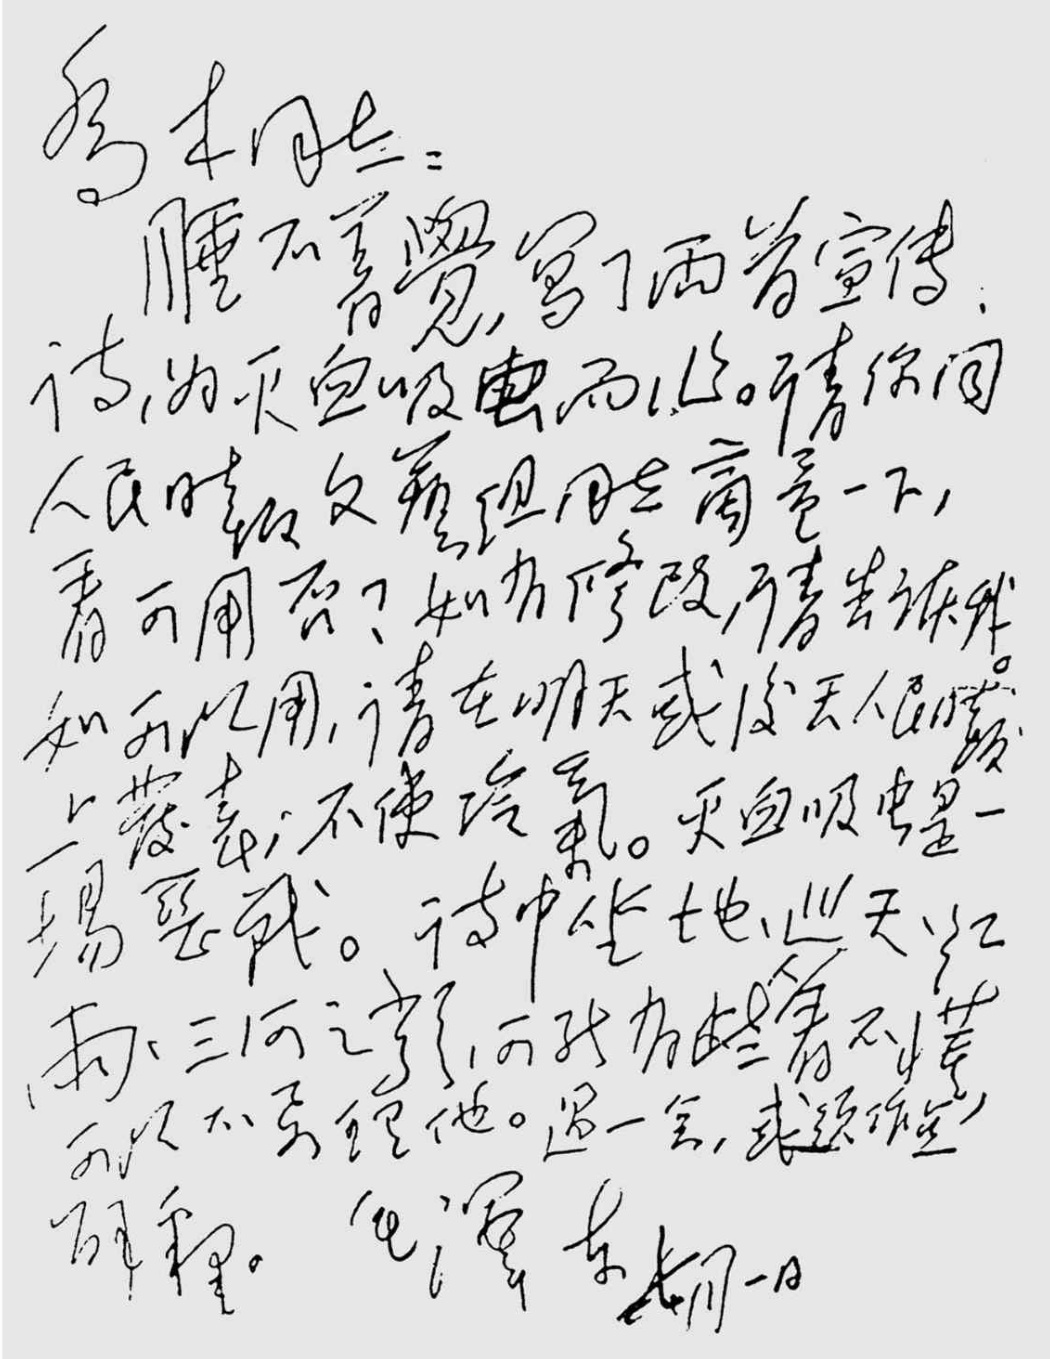 乔木同志：
睡不着覺，写了两首宣传
诗，为灭血吸虫而作。请你同
人民日报文藝组同志商量一下，
看可用否？如有修改，请告诉我。
如可以用，请在明天或后天人民日报
上發表，不使冷氣。灭血吸虫是一
场恶战。诗中坐地、巡天、红
雨、三河之类，可能有些人看不懂，
可以不要理他。过一会，或须作点
解释。
毛澤东
七月一日